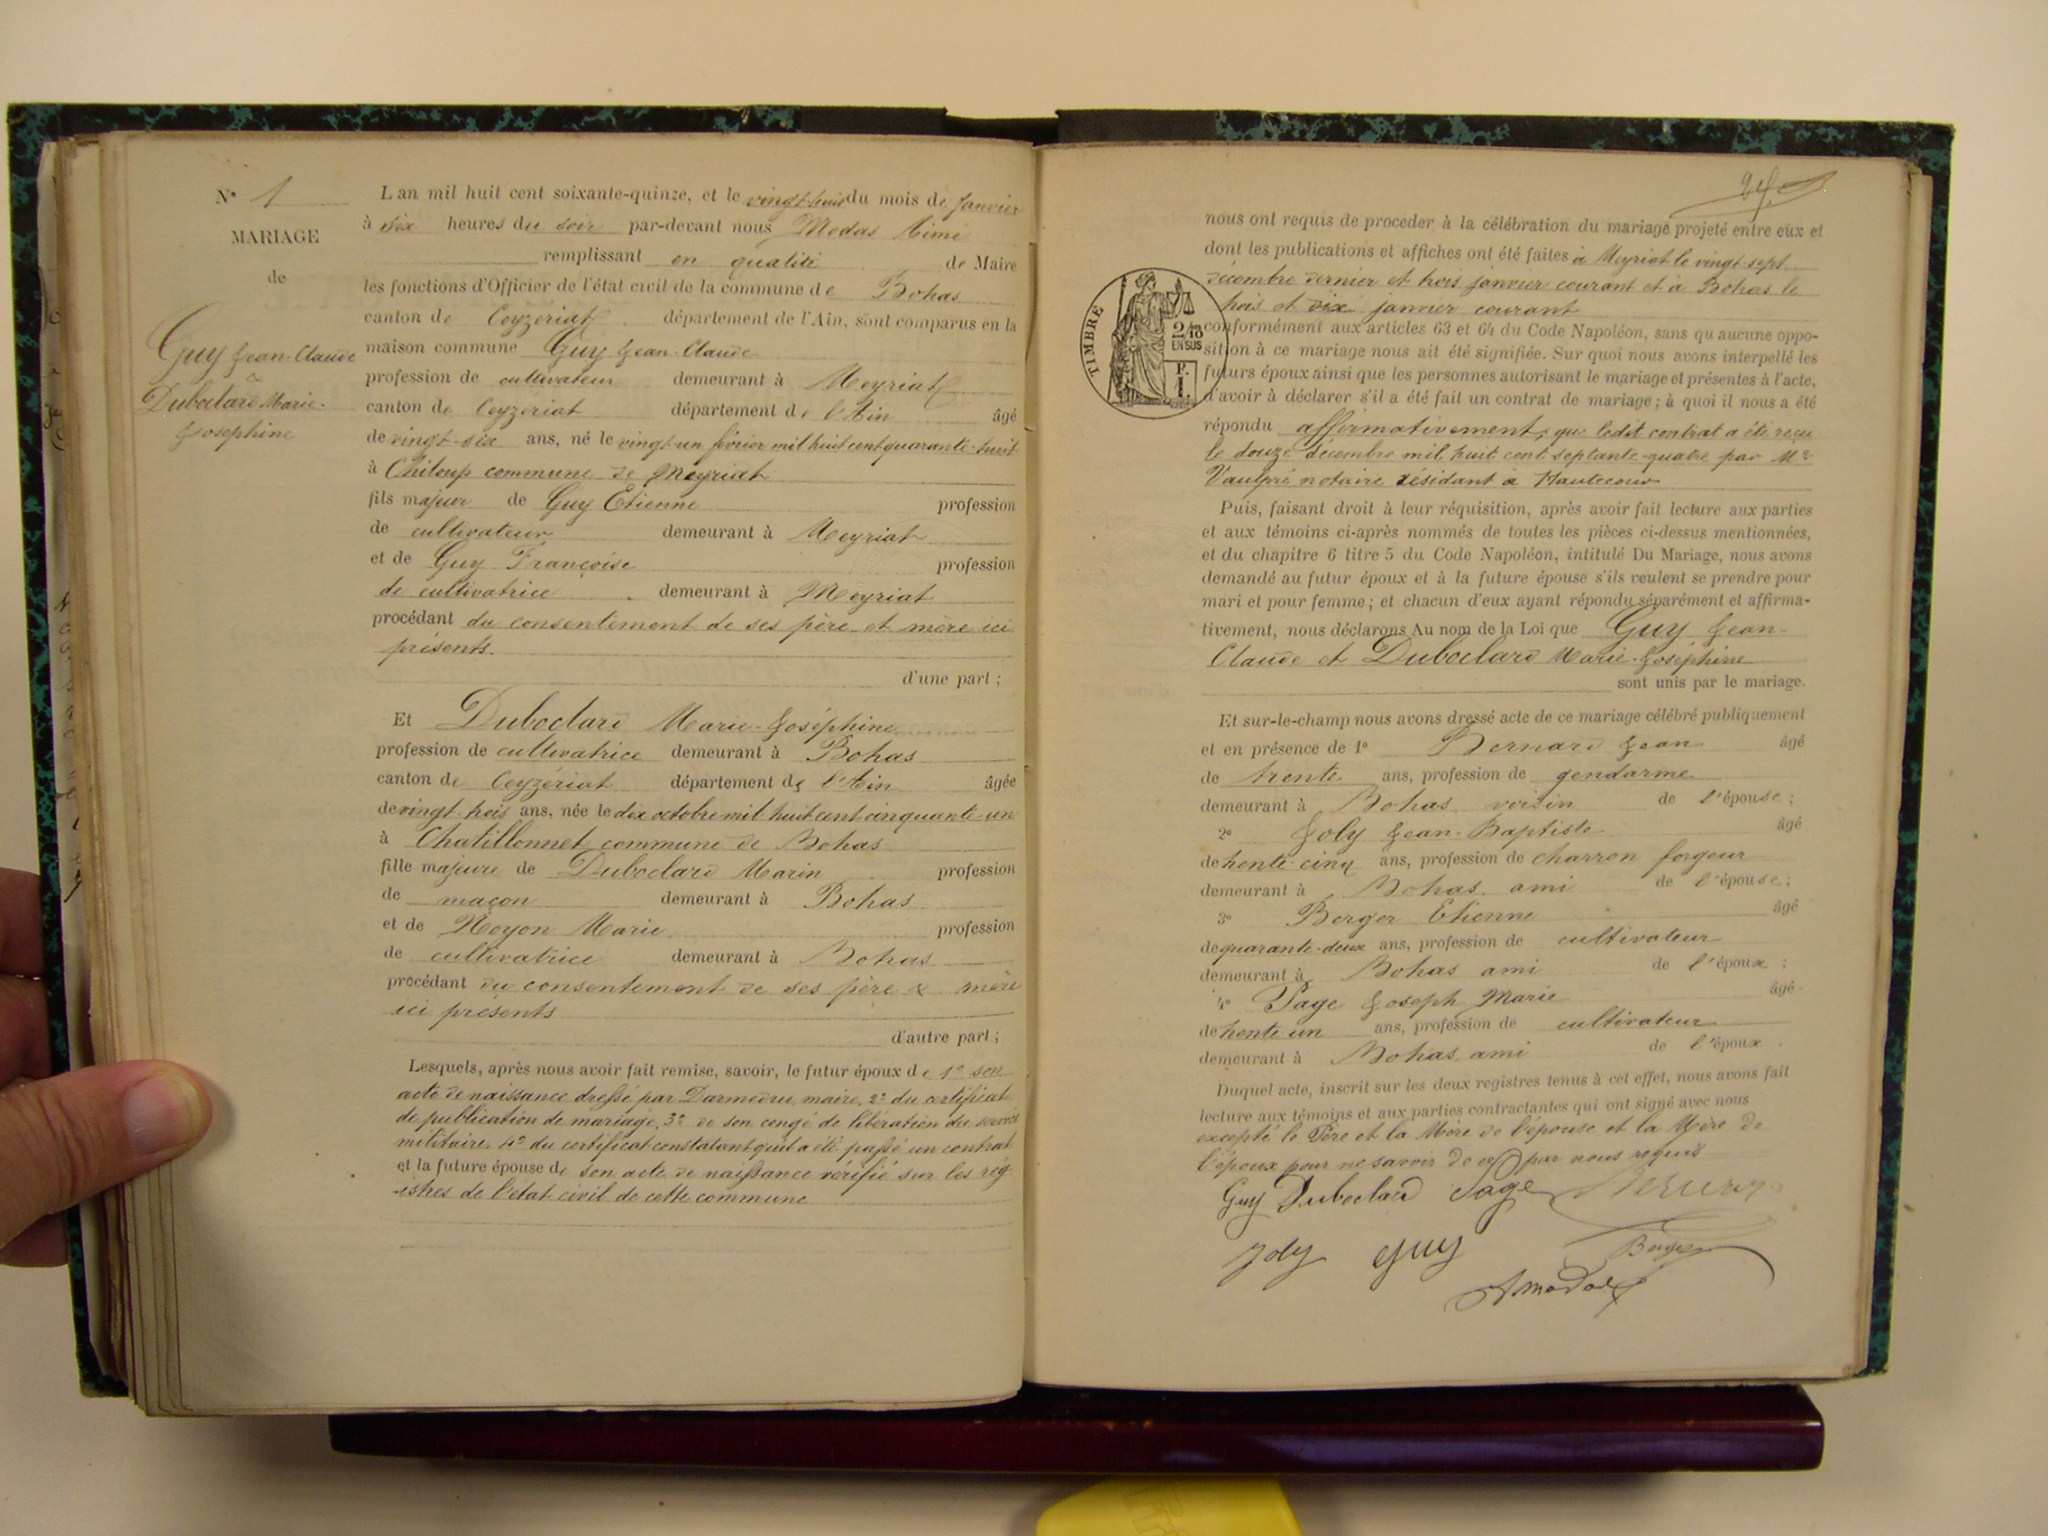 N° 1
MARIAGE
de
Guy Jean-Claude
&
Duboclard Marie-
Joséphine
L'an mil huit cent soixante-quinze, et le vingt-huit du mois de Janvier
à six heures du soir par-devant nous Modas Aimé
remplissant en qualité de Maire
les fonctions d'Officier de l'état civil de la commune de Bohas
canton de Ceyzériat département de l'Ain, sont comparus en la
maison commune Guy Jean-Claude
profession de cultivateur demeurant à Meyriat
canton de Ceyzériat département de l'Ain âgé
de vingt-six ans, né le vingt-un février mil huit cent quarante-huit
à Chiloup commune de Meyriat
fils majeur de Guy Etienne profession
de cultivateur demeurant à Meyriat
et de Guy Françoise profession
de cultivatrice demeurant à Meyriat
procédant du consentement de ses père et mère ici
présents.
d'une part ;
Et Duboclard Marie-Joséphine
profession de cultivatrice demeurant à Bohas
canton de Ceyzériat département de l'Ain âgée
de vingt-trois ans, née le dix octobre mil huit cent cinquante-un
à Chatillonnet commune de Bohas
fille majeure de Duboclard Marin profession
de maçon demeurant à Bohas
et de Noyon Marie profession
de cultivatrice demeurant à Bohas
procédant du consentement de ses père & mère
ici présents
d'autre part ;
Lesquels, après nous avoir fait remise, savoir, le futur époux de 1° son
acte de naissance dressé par Darmedru maire, 2° du certificat
de publication de mariage, 3° de son congé de libération du service
militaire, 4° du certificat constatant qu'il a été passé un contrat
et la future épouse de son acte de naissance vérifié sur les rég-
-istres de l'état civil de cette commune
TIMBRE
2/10
EN SUS
F.
1.
nous ont requis de procéder à la célébration du mariage projeté entre eux et
dont les publications et affiches ont été faites à Meyriat le vingt-sept
décembre dernier et trois janvier courant et à Bohas le
trois et dix janvier courant
conformément aux articles 63 et 64 du Code Napoléon, sans qu'aucune oppo-
sition à ce mariage nous ait été signifiée. Sur quoi nous avons interpellé les
futurs époux ainsi que les personnes autorisant le mariage et présentes à l'acte,
d'avoir à déclarer s'il a été fait un contrat de mariage ; à quoi il nous a été
répondu affirmativement, que ledit contrat a été reçu
le douze décembre mil huit cent septante-quatre par Me
Vaulpré notaire résidant à Hautecour
Puis, faisant droit à leur réquisition, après avoir fait lecture aux parties
et aux témoins ci-après nommés de toutes les pièces ci-dessus mentionnées,
et du chapitre 6 titre 5 du Code Napoléon, intitulé Du Mariage, nous avons
demandé au futur époux et à la future épouse s'ils veulent se prendre pour
mari et pour femme ; et chacun d'eux ayant répondu séparément et affirma-
tivement, nous déclarons Au nom de la Loi que Guy Jean-
Claude et Duboclard Marie-Joséphine
sont unis par le mariage.
Et sur-le-champ nous avons dressé acte de ce mariage célébré publiquement
et en présence de 1° Bernard Jean âgé
de trente ans, profession de gendarme
demeurant à Bohas voisin de l'épouse ;
2° Joly Jean-Baptiste âgé
de trente-cinq ans, profession de charron forgeur
demeurant à Bohas ami de l'épouse ;
3° Berger Etienne âgé
de quarante-deux ans, profession de cultivateur
demeurant à Bohas ami de l'époux ;
4° Page Joseph Marie âgé
de trente un ans, profession de cultivateur
demeurant à Bohas ami de l'époux.
Duquel acte, inscrit sur les deux registres tenus à cet effet, nous avons fait
lecture aux témoins et aux parties contractantes qui ont signé avec nous
excepté le Père et la Mère de l'épouse et la Mère de
l'époux pour ne savoir de ce par nous requis
Guy Duboclard Page
Joly Guy Berger